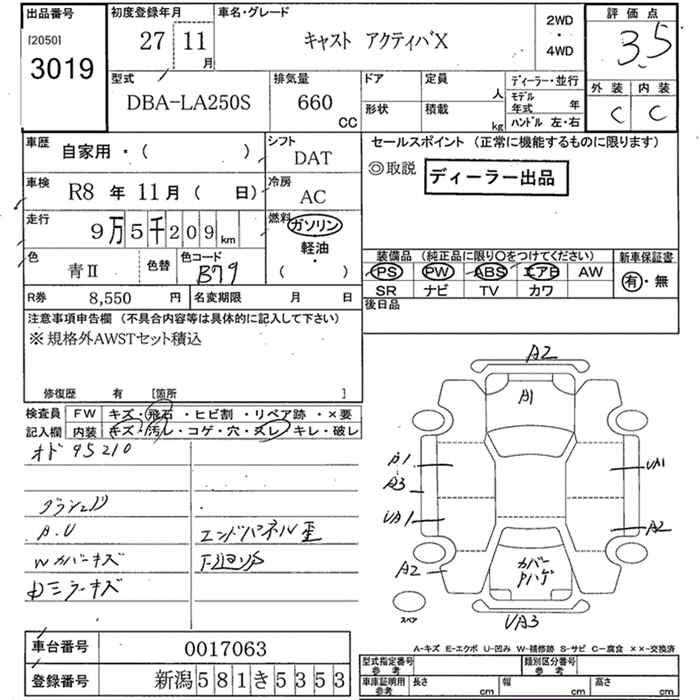 出品番号
[2050]
3019
初度登録年月
27 11 月
車名・グレード
キャスト アクティバX
2WD
・
4WD
評価点
3.5
外装 内装
C C
型式
DBA-LA250S
排気量
660
CC
ドア
形状
定員
人
積載
kg
ディーラー・並行
モデル
年式 年
ハンドル 左・右
車歴
自家用・( )
シフト
DAT
車検
R8 年 11 月 ( 日)
冷房
AC
走行
9万5千209 km
燃料
ガソリン
軽油
・
( )
色
青Ⅱ
色替
色コード
B79
R券
8,550 円
名変期限 月 日
セールスポイント (正常に機能するものに限ります)
◎取説
ディーラー出品
装備品 (純正品に限り○をつけてください)
PS PW ABS エアB AW
SR ナビ TV カワ
新車保証書
有・無
後日品
注意事項申告欄 (不具合内容等は具体的に記入して下さい)
※規格外AWSTセット積込
修復歴 有 [箇所 ]
検査員
記入欄
FW キズ・飛石・ヒビ割・リペア跡・×要
内装 キズ・汚レ・コゲ・穴・スレ・キレ・破レ
オド 95210
A.U
Wカバーキズ
ミラーキズ
エンドパネル歪
A2
A1
A1
A3
UA1
A2
UA1
A2
カバー
Pハゲ
UA3
スペア
A-キズ E-エクボ U-凹み W-補修跡 S-サビ C-腐食 ××-交換済
車台番号
0017063
登録番号
新潟581き5353
型式指定番号
参考
類別区分番号
参考
車庫証明用
参考
長さ cm
幅 cm
高さ cm